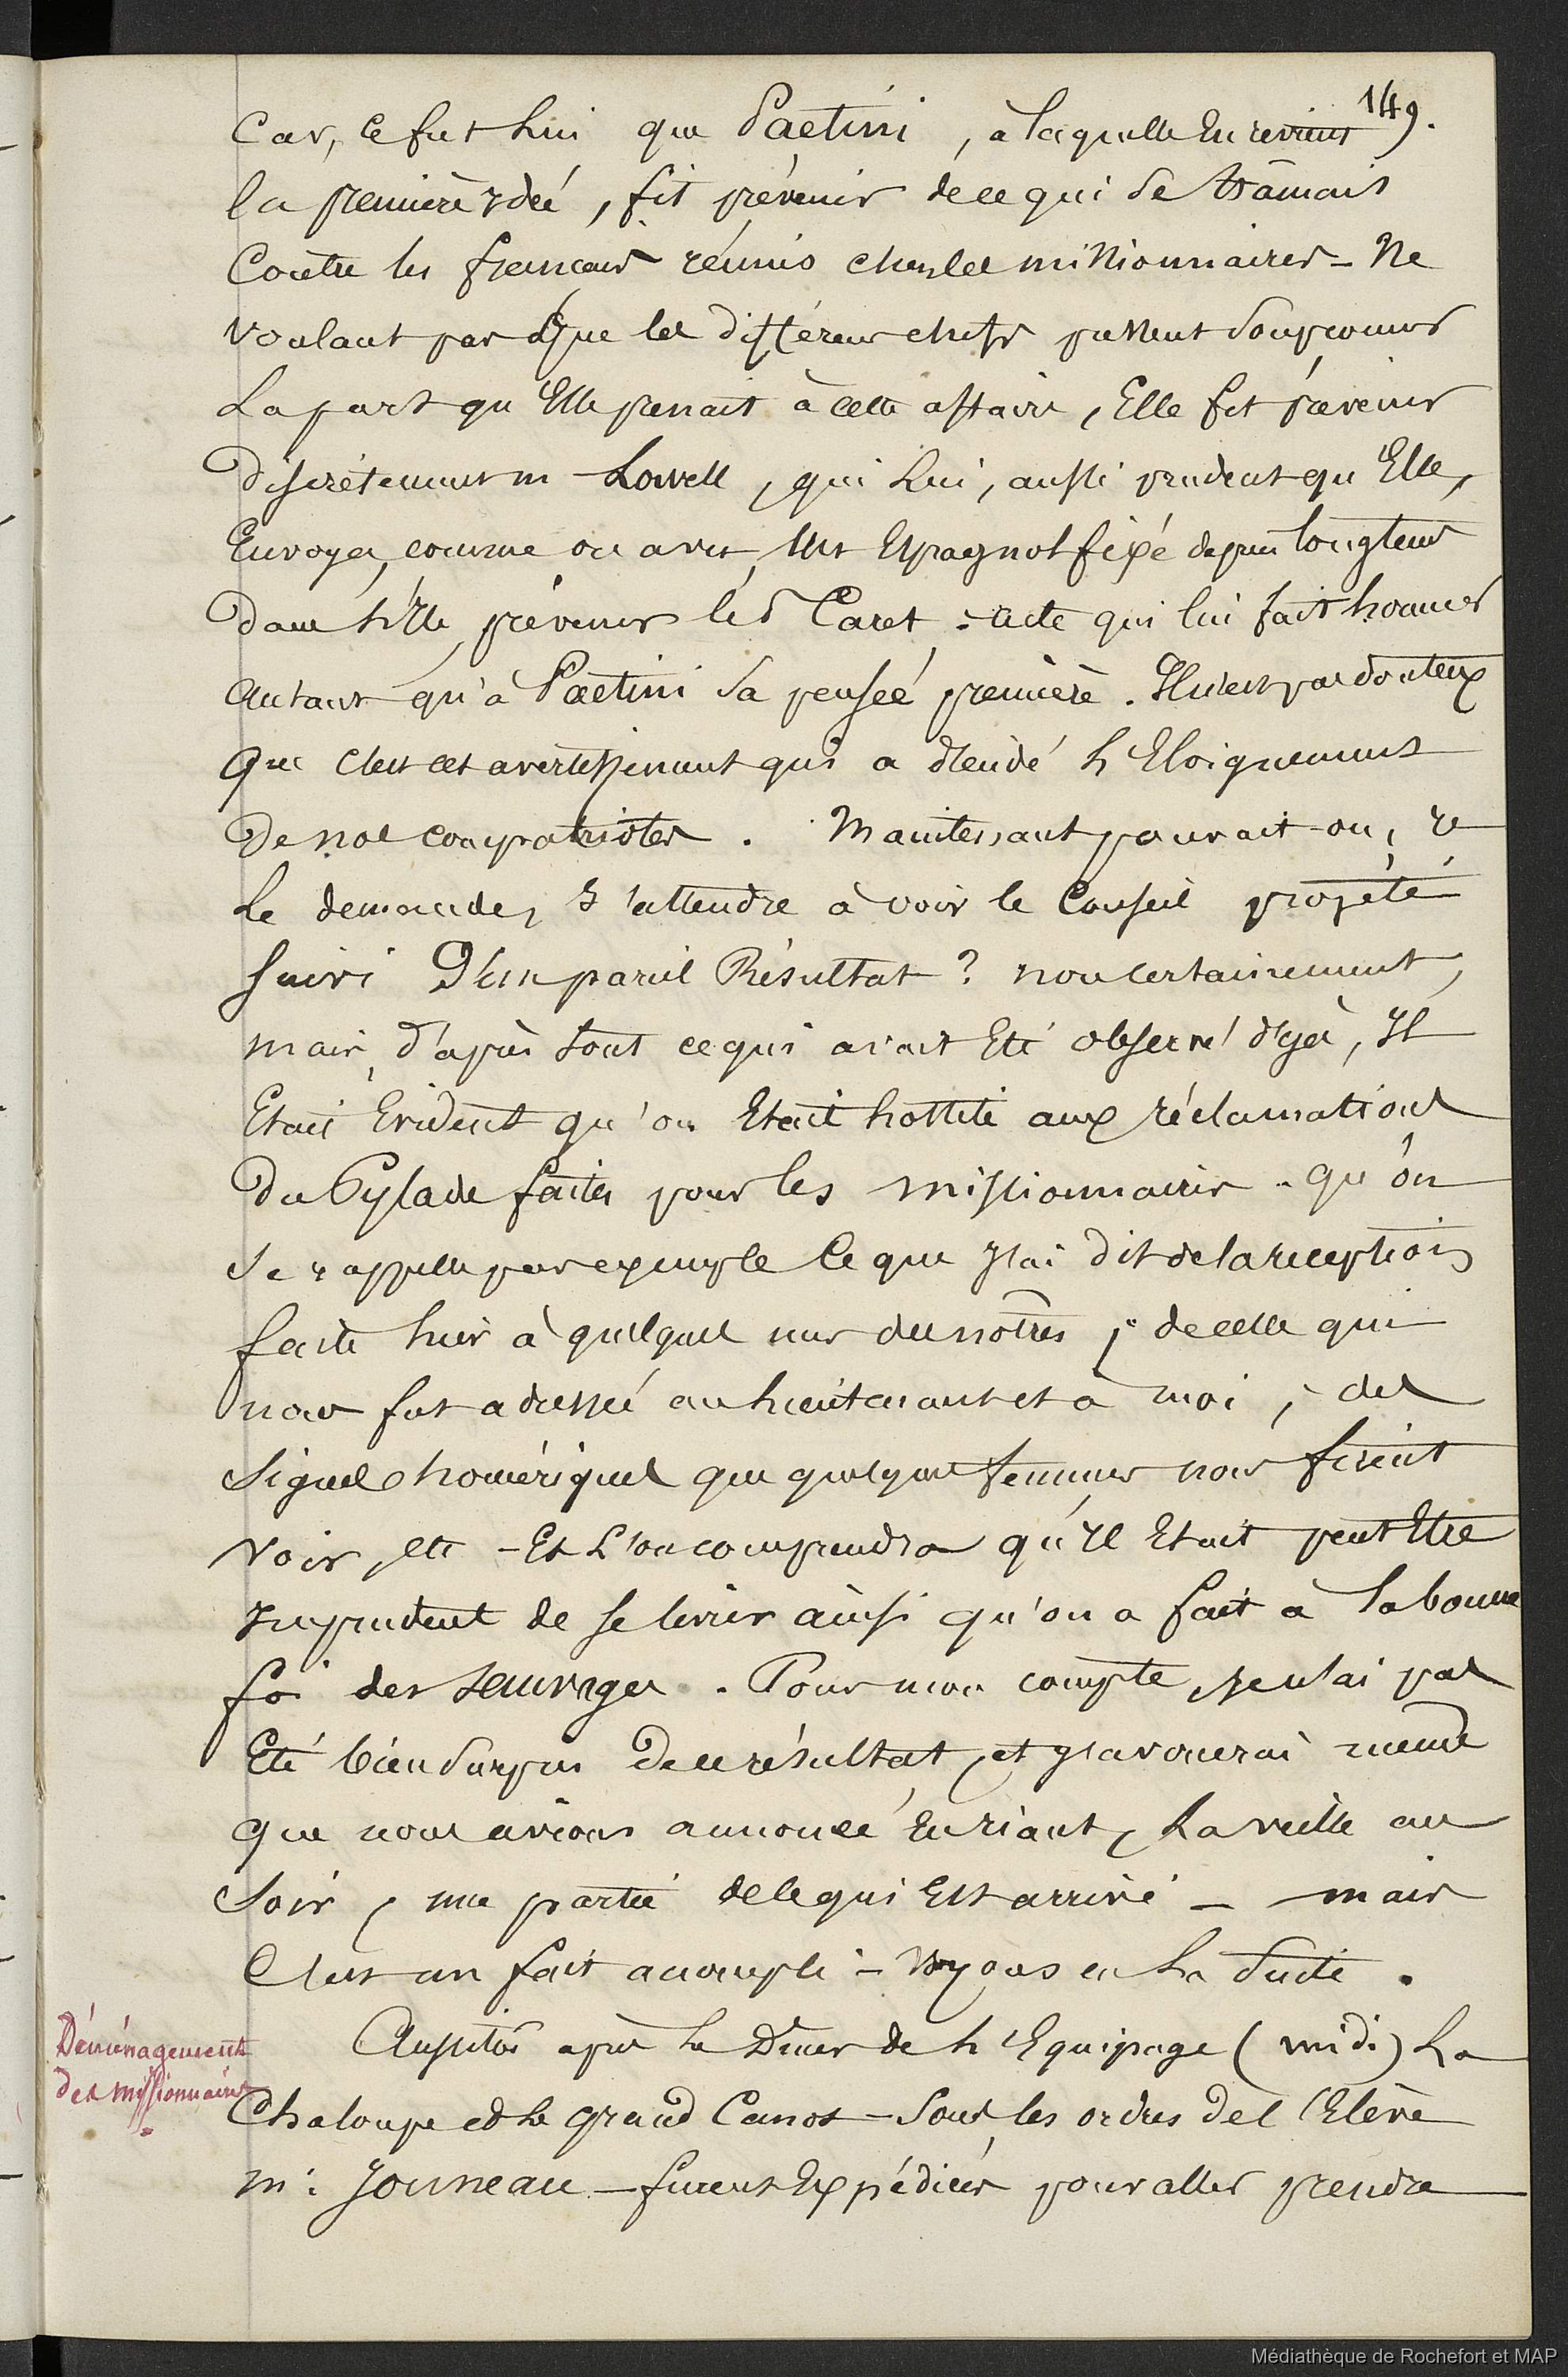 149.
Car, ce fut lui que Paetini, à laquelle En revient
la première Idée, fit prévenir de ce qui se trâmait
Contre les français réunis chez les missionnaires - Ne
voulant pas que les différens chefs pussent soupçonner
La part qu'Elle prenait à cette affaire, Elle fit prévenir
Discrétement m Lowell, qui Lui, aussi prudent qu'Elle,
Envoya, comme on a vu, Un Espagnol fixé depuis longtems
Dans L'Ile, prévenir les Caret : acte qui lui fait honneur
Autant qu'à Paetini sa pensée première. Il n'est pas douteux
Que C'est cet avertissement qui a décidé L'Eloignement
De nos compatriotes. Maintenant pouvait-on, je
Le demande, s'attendre à voir le Conseil projété
suivi D'un pareil Résultat ? non certainement,
mais, d'après tout ce qui avait Eté observé déjà, Il
Etait Evident qu'on Etait hostile aux réclamations
Du Pylade faites pour les missionnaires. qu'on
se rappelle par exemple Ce que J'ai dit de la reception
faite hier à quelques uns des nôtres ; de celle qui
nous fut adressée au Lieutenant et à moi ; des
signes homériques que quelques femmes nous firent
voir, etc - Et L'on comprendra qu'Il Etait peut Etre
Imprudent de se livrer ainsi qu'on a fait à la bonne
foi des sauvages. Pour mon compte, je n'ai pas
Eté bien surpris De ce résultat, et j'avouerai même
que nous avions annoncé En riant, La veille au
Soir, une partie de ce qui Est arrivé - mais
C'est un fait accompli - Voyons en La suite.
Déménagement
des missionnaires
Aussitôt après Le Diner de L'Equipage (midi) La
Chaloupe et Le grand Canot - Sous les ordres de L'Elève
m : Jouneau - furent Expédiées pour aller prendre
Médiathèque de Rochefort et MAP